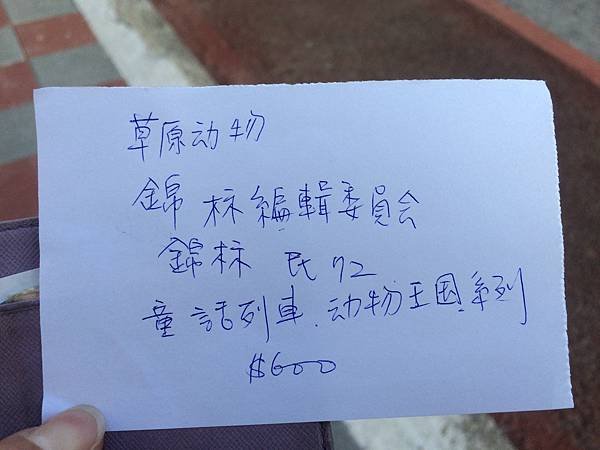 草原动物
錦林編輯委員会
錦林 民72
童話列車.动物王国系列
$600